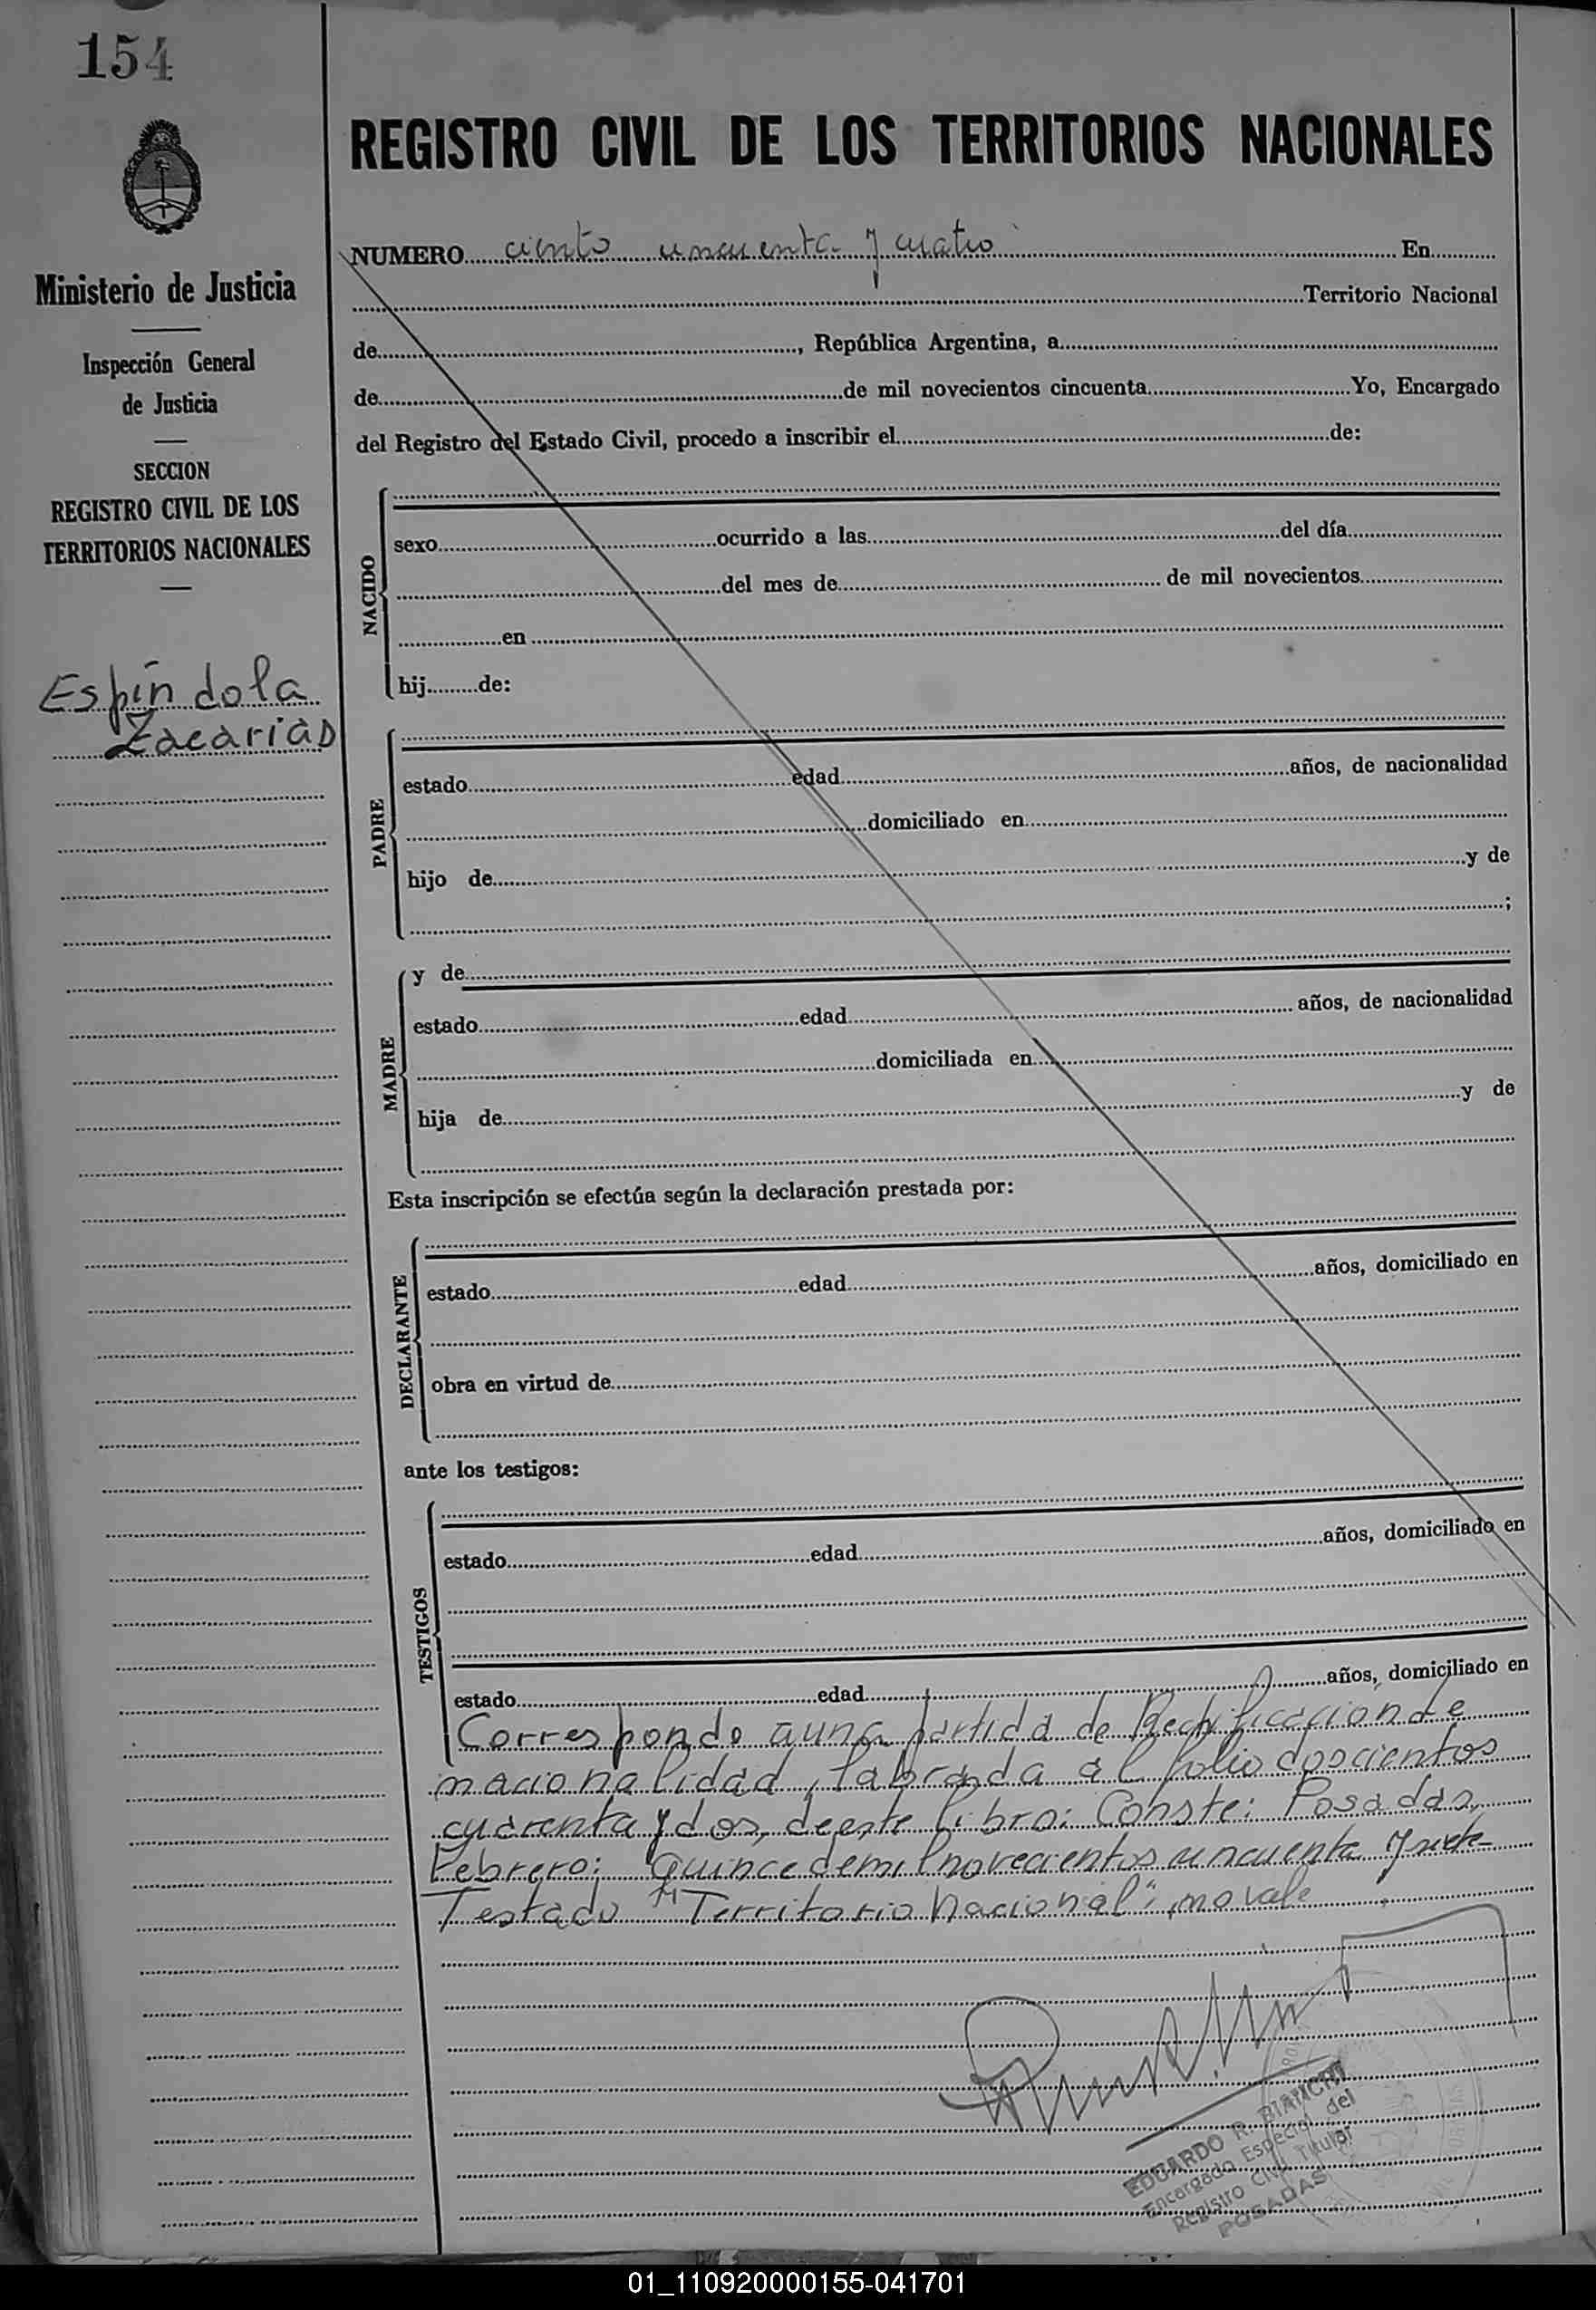 154
REGISTRO CIVIL DE LOS TERRITORIOS NACIONALES
Ministerio de Justicia
Inspección General
de Justicia
SECCION
REGISTRO CIVIL DE LOS
TERRITORIOS NACIONALES
Espíndola
Zacarias
NUMERO ciento cincuenta y cuatro En
Territorio Nacional
de , República Argentina, a
de de mil novecientos cincuenta Yo, Encargado
del Registro del Estado Civil, procedo a inscribir el de:
NACIDO
sexo ocurrido a las del día
del mes de de mil novecientos
en
hij de:
PADRE
estado edad años, de nacionalidad
domiciliado en
hijo de y de
;
MADRE
y de
estado edad años, de nacionalidad
domiciliada en
hija de y de
Esta inscripción se efectúa según la declaración prestada por:
DECLARANTE
estado edad años, domiciliado en
obra en virtud de
ante los testigos:
TESTIGOS
estado edad años, domiciliado en
estado edad años, domiciliado en
Correspondo a una partida de Rectificacion de
nacionalidad, labrada al folio doscientos
cuarenta y dos, de este libro: Conste: Posadas,
Febrero: Quince de mil novecientos cincuenta y siete
Testado "Territorio Nacional", no vale
EDUARDO R. BIANCHI
Encargado Especial del
Registro Civil Titular
POSADAS
01_110920000155-041701